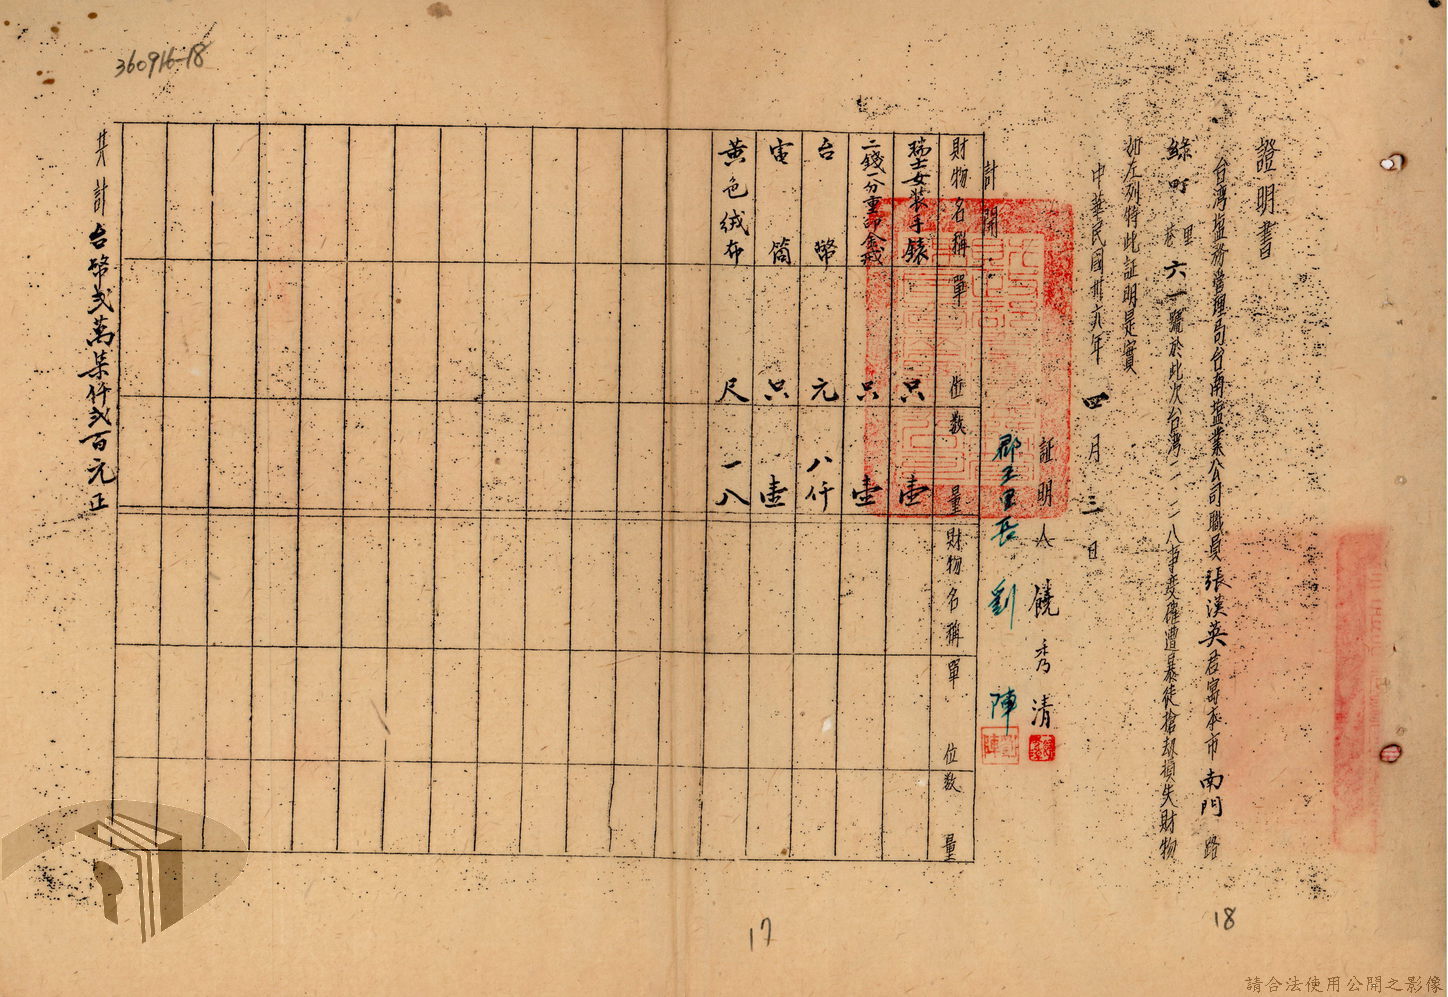 360916-18
證明書
台湾塩務管理局台南塩業公司職員張漢英君寓本市南門路
綠町里巷六一號於此次台湾二·二八事変確遭暴徒搶刼損失財物
如左列特此証明是實
中華民國卅六年四月三日
証明人 饒秀清
郡王里長 劉陣
計開
財物名稱 單位 数量 財物名稱 單位 数量
瑞士女裝手錶 只 壹
二錢一分重印金戒 只 壹
台幣 元 八仟
電筒 只 壹
黃色絨布 尺 一八
共計台幣弐萬柒仟弐百元正
17
18
請合法使用公開之影像